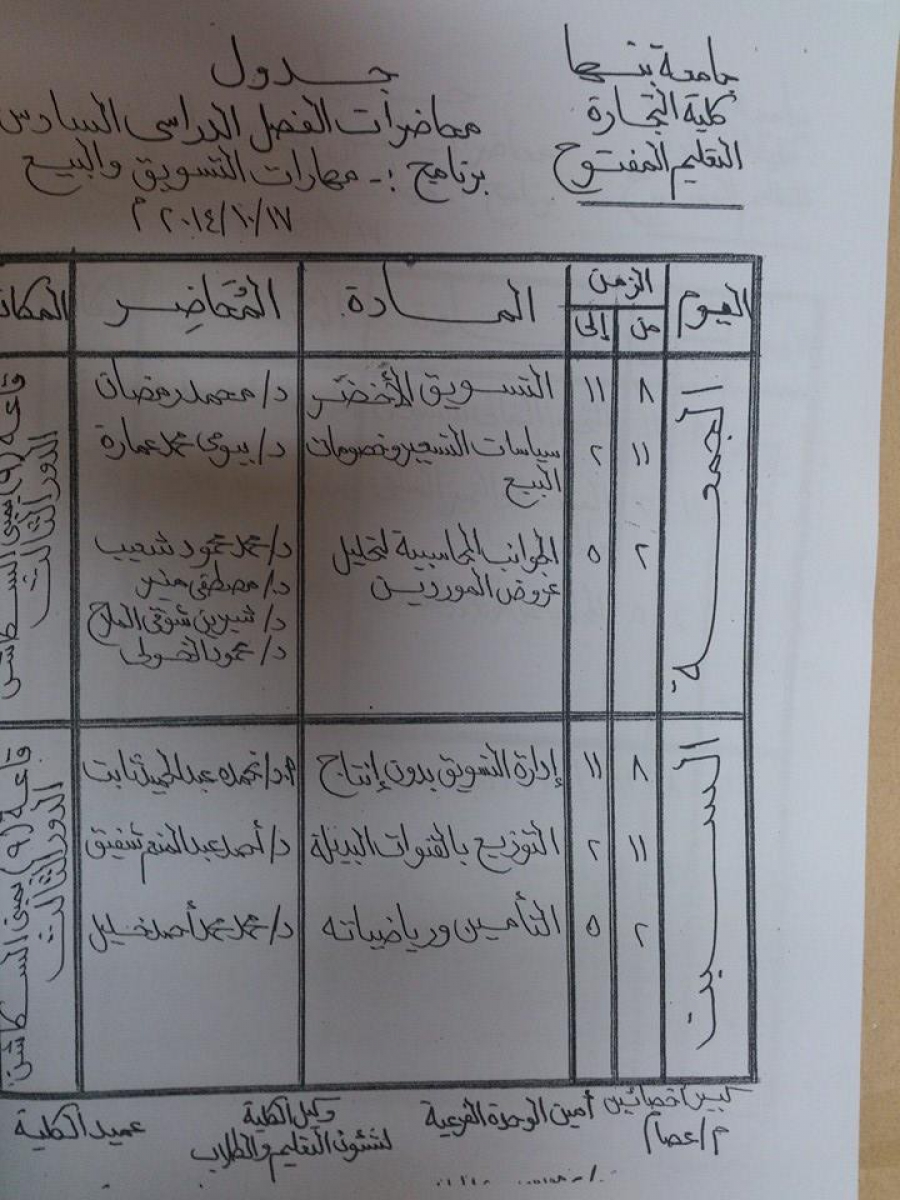 جامعة بنها
كلية التجارة
التعليم المفتوح
جدول
محاضرات الفصل الدراسى السادس
برنامج :- مهارات التسويق والبيع
٢٠١٤/١٠/١٧ م
اليوم الزمن المادة المُحَاضِر المكان
من إلى
الجمعة
٨ ١١ التسويق الأخضر د/ محمد رمضان
١١ ٢ سياسات التسعير وخصومات د/ بيومى محمد عمارة
البيع
٢ ٥ الجوانب المحاسبية لتحليل د/ محمد محمود شعيب
عروض الموردين د/ مصطفى منير
د/ شيرين شوقى الملاح
د/ محمود الخولى
قاعة (٩) بمبنى السكاشن
الدور الثالث
السبت
٨ ١١ إدارة التسويق بدون إنتاج عبد الحميد ثابت
١١ ٢ التوزيع بالقنوات البديلة د/ أحمد عبد المنعم شفيق
٢ ٥ التأمين ورياضياته د/ محمد محمد أحمد خليل
قاعة (٩) بمبنى السكاشن
الدور الثالث
كبير أخصائين أمين الوحدة الفرعية وكيل الكلية عميد الكلية
م/ عصام لشئون التعليم والطلاب